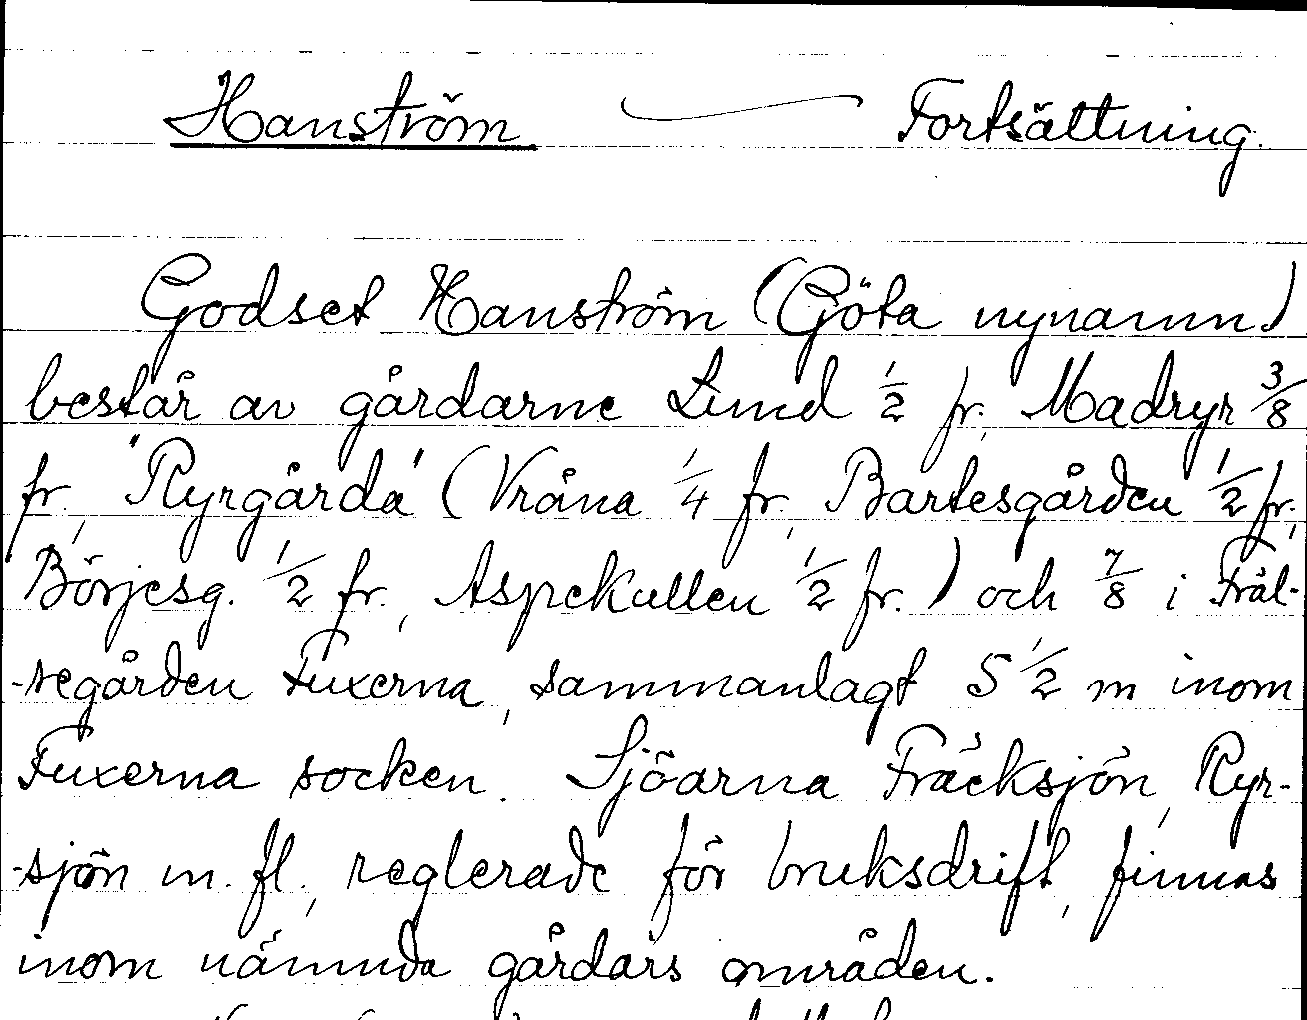 Hanström — Fortsättning.
Godset Hanström (Göta nynamn)
består av gårdarne Lund 1/2 fr., Madryr 3/8
fr., "Ryrgårda" (Vråna 1/4 fr., Bartesgården 1/2 fr.,
Börjesg. 1/2 fr., Aspekullen 1/2 fr.) och 7/8 i Fräl-
-segården Fuxerna, sammanlagt 5 1/2 m inom
Fuxerna socken. Sjöarna Fräcksjön, Ryr-
-sjön m. fl., reglerade för bruksdrift, finnas
inom nämnda gårdars områden.